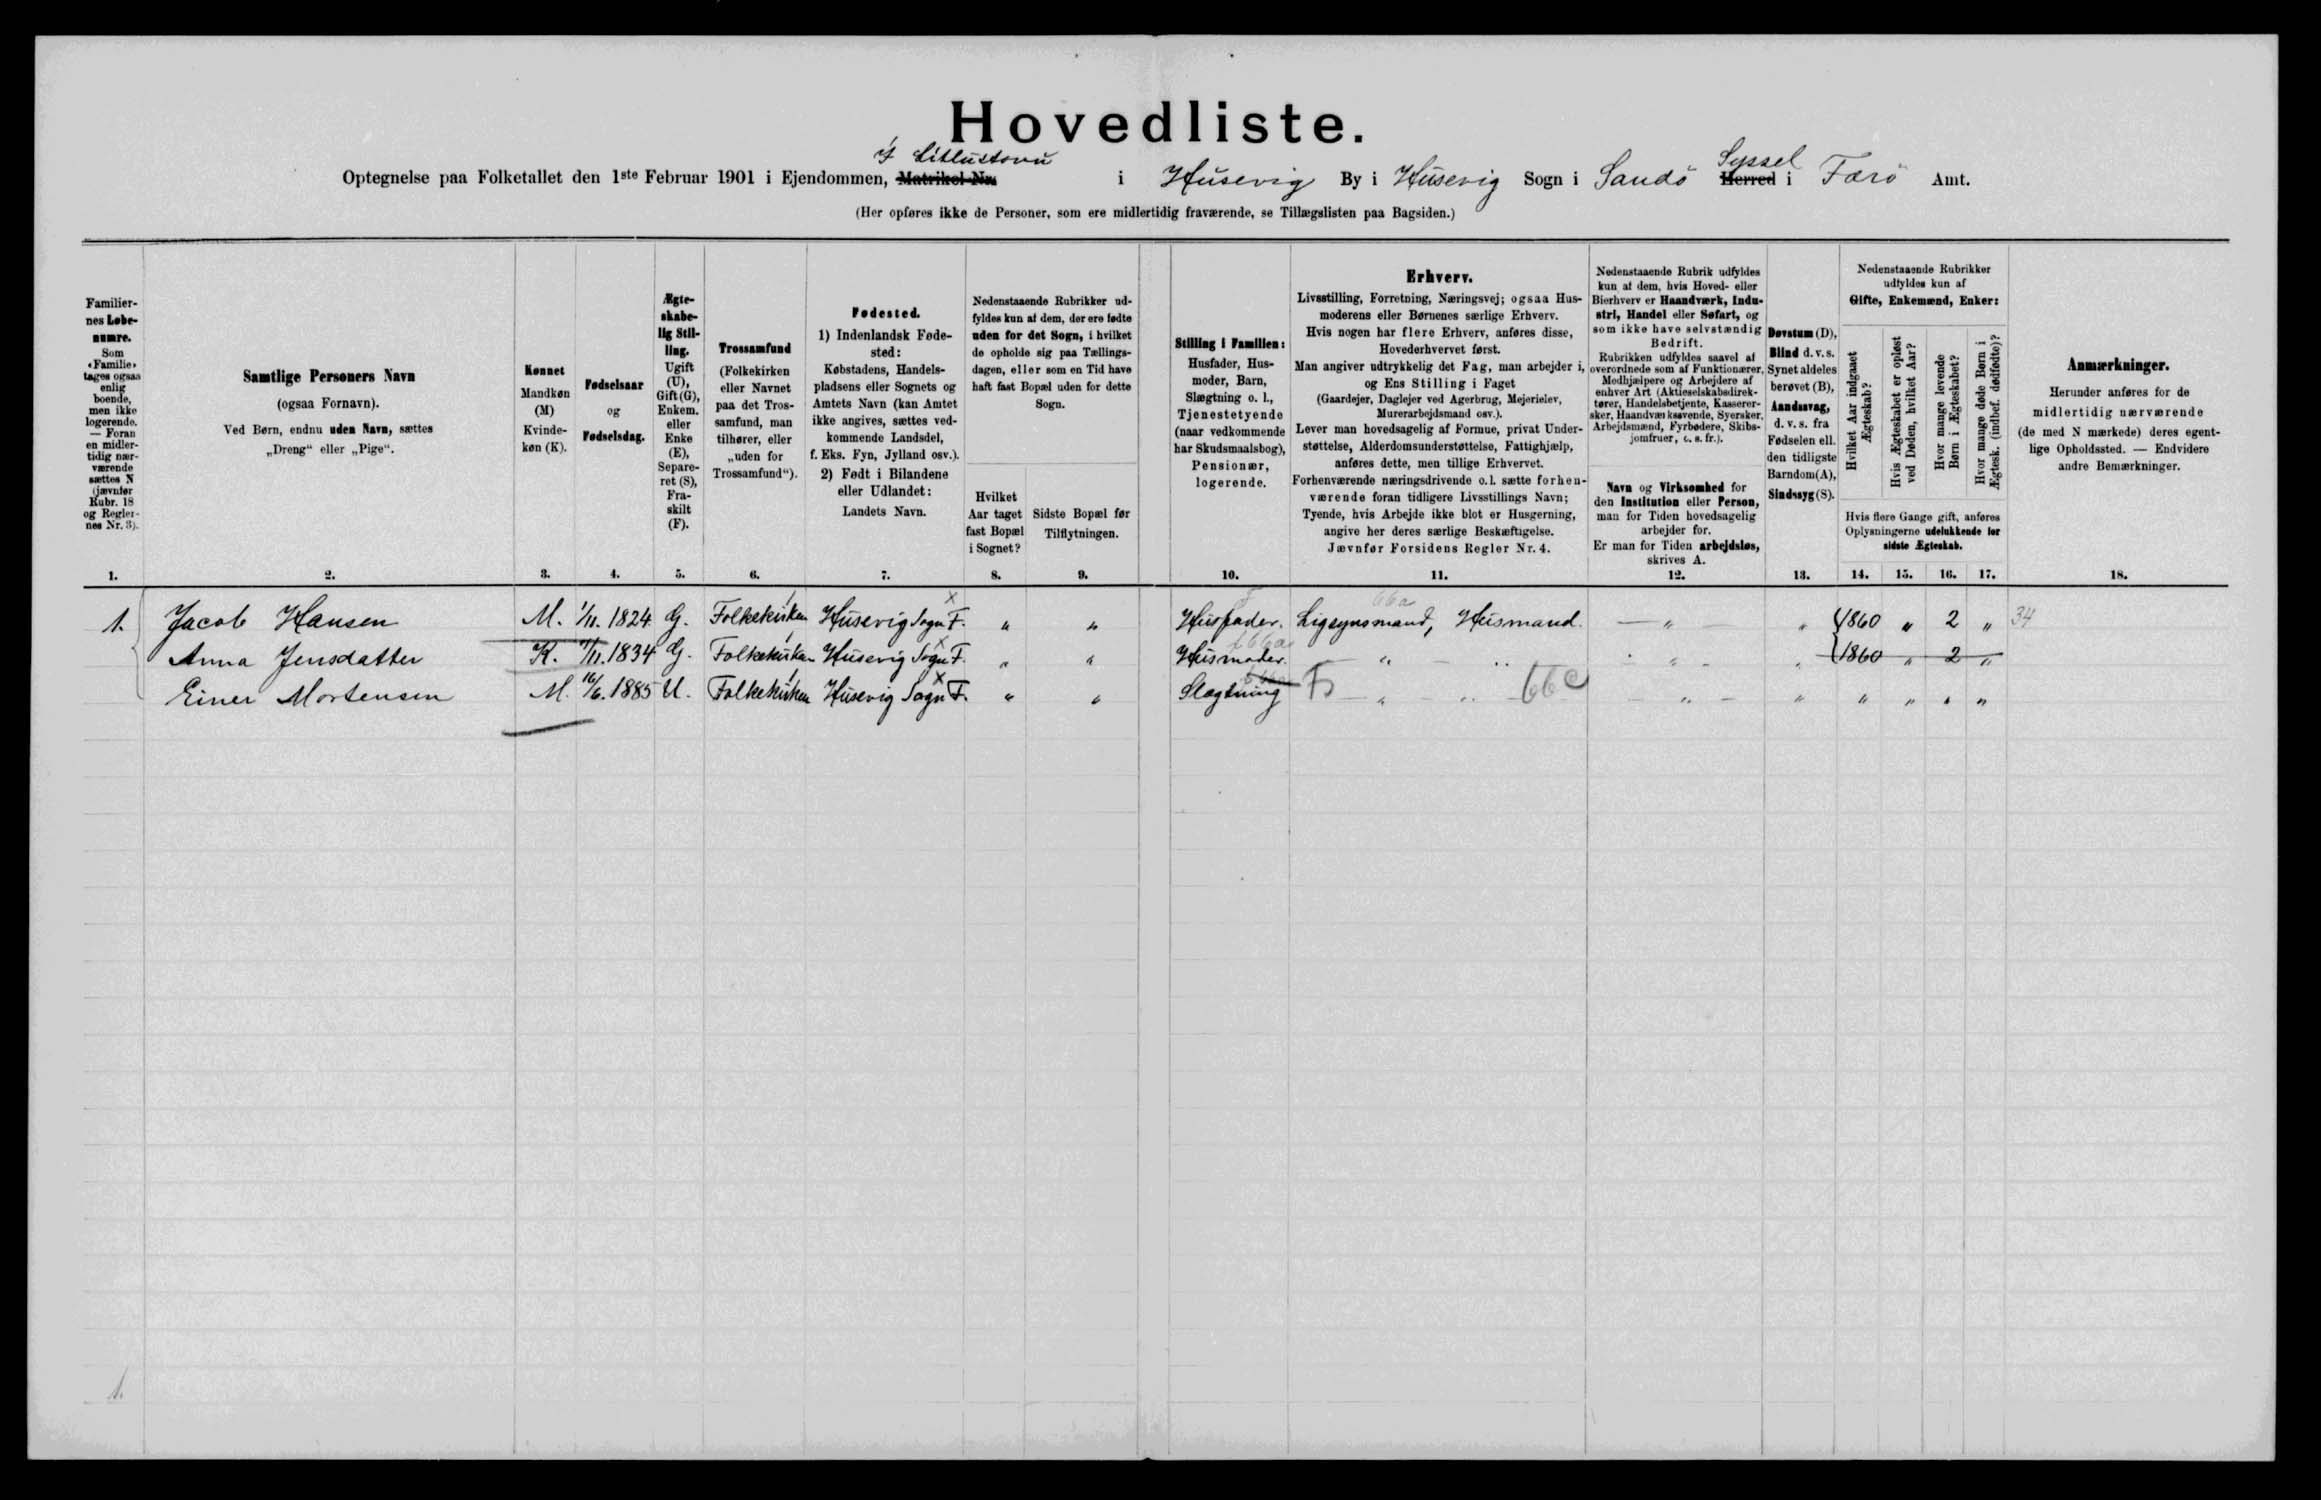 Hovedliste.
Optegnelse paa Folketallet den 1ste Februar 1901 i Ejendommen, Matrikel Nr. Í Litlustovu i Húsevig By i Húsevig Sogn i Sandö Herred Syssel i Færö Amt.
(Her opføres ikke de Personer, som ere midlertidig fraværende, se Tillægslisten paa Bagsiden.)
Familiernes Løbenumre.
Som «Familie» tages ogsaa enlig boende, men ikke logerende. — Foran en midlertidig nærværende sættes N (jævnfør Rubr. 18 og Reglernes Nr. 3).
1.
Samtlige Personers Navn
(ogsaa Fornavn).
Ved Børn, endnu uden Navn, sættes
„Dreng" eller „Pige".
2.
Kønnet
Mandkøn (M) Kvindekøn (K).
3.
Fødselsaar
og
Fødselsdag.
4.
Ægteskabelig Stilling.
Ugift (U), Gift (G), Enkem. eller Enke (E), Separeret (S), Fraskilt (F).
5.
Trossamfund
(Folkekirken eller Navnet paa det Trossamfund, man tilhører, eller „uden for Trossamfund").
6.
Fødested.
1) Indenlandsk Fødested:
Købstadens, Handelspladsens eller Sognets og Amtets Navn (kan Amtet ikke angives, sættes vedkommende Landsdel, f. Eks. Fyn, Jylland osv.).
2) Født i Bilandene eller Udlandet:
Landets Navn.
7.
Nedenstaaende Rubrikker udfyldes kun af dem, der ere fødte uden for det Sogn, i hvilket de opholde sig paa Tællingsdagen, eller som en Tid have haft fast Bopæl uden for dette Sogn.
Hvilket Aar taget fast Bopæl i Sognet?
8.
Sidste Bopæl før Tilflytningen.
9.
Stilling i Familien:
Husfader, Husmoder, Barn, Slægtning o. l., Tjenestetyende (naar vedkommende har Skudsmaalsbog), Pensionær, logerende.
10.
Erhverv.
Livsstilling, Forretning, Næringsvej; ogsaa Husmoderens eller Børnenes særlige Erhverv.
Hvis nogen har flere Erhverv, anføres disse, Hovederhvervet først.
Man angiver udtrykkelig det Fag, man arbejder i, og Ens Stilling i Faget
(Gaardejer, Daglejer ved Agerbrug, Mejerielev, Murerarbejdsmand osv.).
Lever man hovedsagelig af Formue, privat Understøttelse, Alderdomsunderstøttelse, Fattighjælp, anføres dette, men tillige Erhvervet.
Forhenværende næringsdrivende o. l. sætte forhenværende foran tidligere Livsstillings Navn;
Tyende, hvis Arbejde ikke blot er Husgerning, angive her deres særlige Beskæftigelse.
Jævnfør Forsidens Regler Nr. 4.
11.
Nedenstaaende Rubrik udfyldes kun af dem, hvis Hoved- eller Bierhverv er Haandværk, Industri, Handel eller Søfart, og som ikke have selvstændig Bedrift.
Rubrikken udfyldes saavel af overordnede som af Funktionærer, Medhjælpere og Arbejdere af enhver Art (Aktieselskabsdirektører, Handelsbetjente, Kasserersker, Haandværkssvende, Syersker, Arbejdsmænd, Fyrbødere, Skibsjomfruer, o. s. fr.).
Navn og Virksomhed for den Institution eller Person, man for Tiden hovedsagelig arbejder for.
Er man for Tiden arbejdsløs, skrives A.
12.
Døvstum (D),
Blind d. v. s. Synet aldeles berøvet (B),
Aandssvag, d. v. s. fra Fødselen ell. den tidligste Barndom (A),
Sindssyg (S).
13.
Nedenstaaende Rubrikker udfyldes kun af
Gifte, Enkemænd, Enker:
Hvilket Aar indgaaet Ægteskab?
Hvis Ægteskabet er opløst ved Døden, hvilket Aar?
Hvor mange levende Børn i Ægteskabet?
Hvor mange døde Børn i Ægtesk. (indbef. dødfødte)?
Hvis flere Gange gift, anføres Oplysningerne udelukkende for sidste Ægteskab.
14. 15. 16. 17.
Anmærkninger.
Herunder anføres for de midlertidig nærværende (de med N mærkede) deres egentlige Opholdssted. — Endvidere andre Bemærkninger.
18.
1. Jacob Hansen M. 1/11. 1824 G. Folkekirken Húsevig Sogn F. " " Husfader. Ligsynsmand, Húsmand. 66a " " 1860 " 2 " 34
Anna Jensdatter K. 1834 G. Folkekirken Húsevig Sogn F. " " Húsmoder. " " " 1860 " 2 "
Einer Mortensen M. 16/6. 1885 U. Folkekirken Húsevig Sogn F. " " Slægtning " 66c " " " " " "
1.